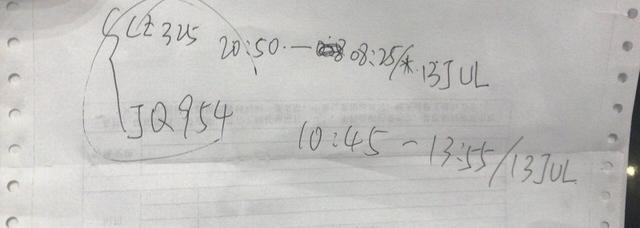 CZ325 20:50 — 08:25/ 13JUL
JQ954 10:45 - 13:55/13JUL